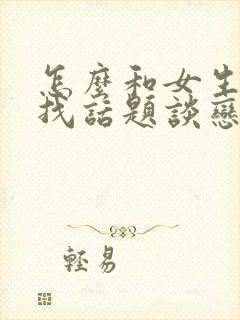 怎麼和女生
找話題談戀
輕易